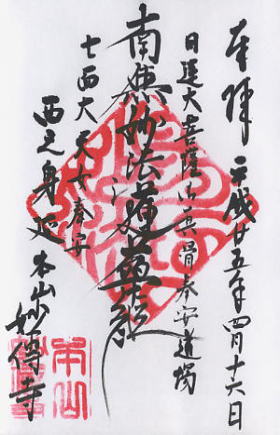 奉拝 平成廿五年四月十六日
日蓮大菩薩御真骨奉安道場
南無妙法蓮華経
七面大天女奉安
西之身延 本山妙傳寺
本山